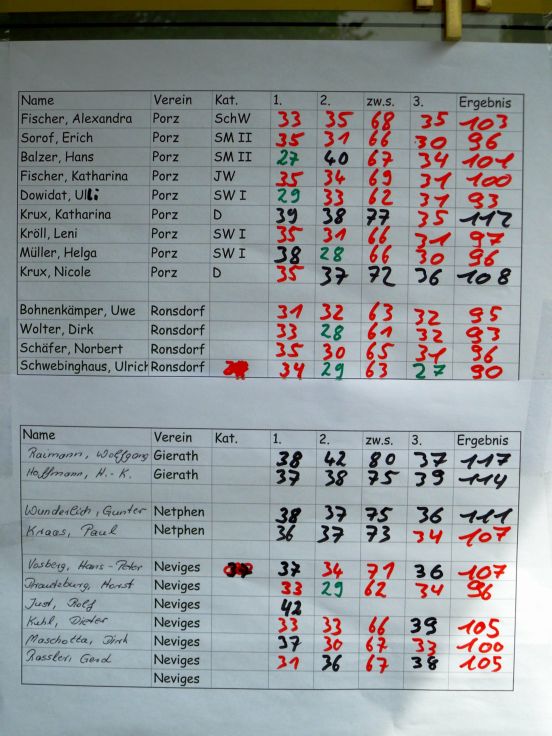 Name Verein Kat. 1. 2. zw.s. 3. Ergebnis
Fischer, Alexandra Porz SchW 33 35 68 35 103
Sorof, Erich Porz SM II 35 31 66 30 96
Balzer, Hans Porz SM II 27 40 67 34 101
Fischer, Katharina Porz JW 35 34 69 31 100
Dowidat, Ulli Porz SW I 29 33 62 31 93
Krux, Katharina Porz D 39 38 77 35 112
Kröll, Leni Porz SW I 35 31 66 31 97
Müller, Helga Porz SW I 38 28 66 30 96
Krux, Nicole Porz D 35 37 72 36 108
Bohnenkämper, Uwe Ronsdorf 31 32 63 32 95
Wolter, Dirk Ronsdorf 33 28 61 32 93
Schäfer, Norbert Ronsdorf 35 30 65 31 96
Schwebinghaus, Ulrich Ronsdorf 34 29 63 27 90
Name Verein Kat. 1. 2. zw.s. 3. Ergebnis
Raimann, Wolfgang Gierath 38 42 80 37 117
Hoffmann, H.-K. Gierath 37 38 75 39 114
Wunderlich, Gunter Netphen 38 37 75 36 111
Kraas, Paul Netphen 36 37 73 34 107
Vosberg, Hans-Peter Neviges 37 34 71 36 107
Horst Neviges 33 29 62 34 96
Just, Rolf Neviges 42
Kuhl, Dieter Neviges 33 33 66 39 105
Maschotta, Dirk Neviges 37 30 67 33 100
Rassler, Gerd Neviges 31 36 67 38 105
Neviges